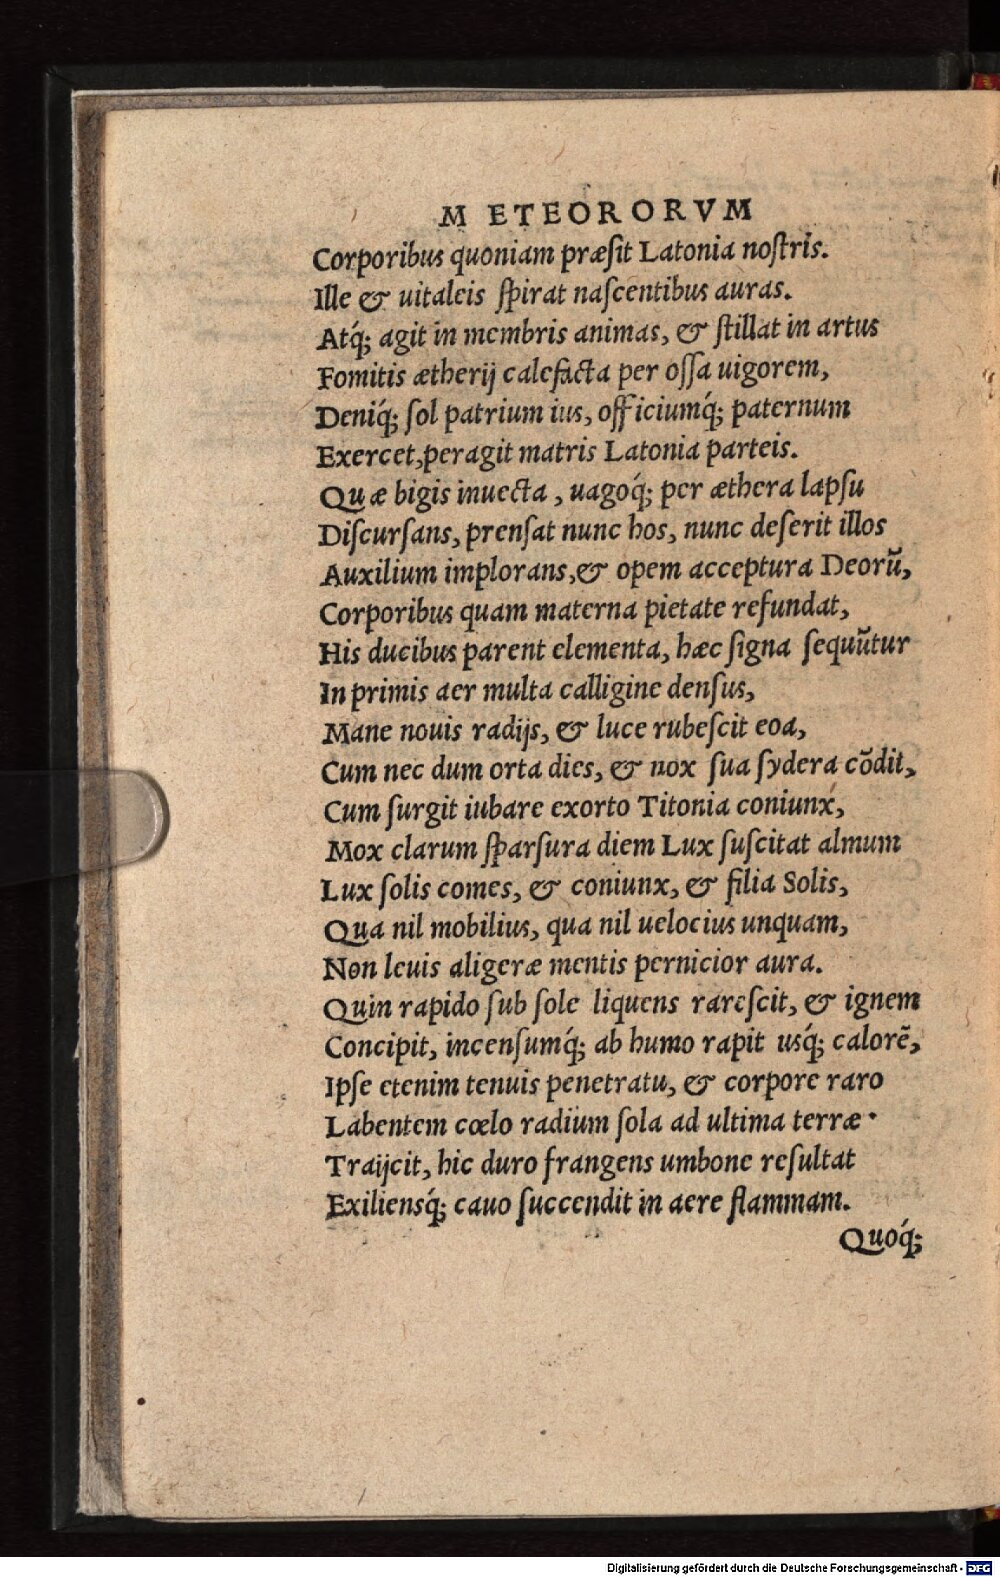 M ETEORORVM
Corporibus quoniam præſit Latonia noſtris.
Ille & uitaleis ſpirat naſcentibus auras.
Atq́; agit in membris animas, & ſtillat in artus
Fomitis ætherij calefacta per oſſa uigorem,
Deniq́; ſol patrium ius, officiumq́; paternum
Exercet, peragit matris Latonia parteis.
Quæ bigis inuecta, uagoq́; per æthera lapſu
Diſcurſans, prenſat nunc hos, nunc deſerit illos
Auxilium implorans, & opem acceptura Deorũ,
Corporibus quam materna pietate refundat,
His ducibus parent elementa, hæc ſigna ſequũtur
In primis aer multa calligine denſus,
Mane nouis radijs, & luce rubeſcit eoa,
Cum nec dum orta dies, & nox ſua ſydera cõdit,
Cum ſurgit iubare exorto Titonia coniunx,
Mox clarum ſparſura diem Lux ſuſcitat almum
Lux ſolis comes, & coniunx, & filia Solis,
Qua nil mobilius, qua nil uelocius unquam,
Non leuis aligeræ mentis pernicior aura.
Quin rapido ſub ſole liquens rareſcit, & ignem
Concipit, incenſumq́; ab humo rapit uſq́; calorẽ,
Ipſe etenim tenuis penetratu, & corpore raro
Labentem cœlo radium ſola ad ultima terræ.
Traijcit, hic duro frangens umbone reſultat
Exiliensq́; cauo ſuccendit in aere flammam.
Quoq́;
Digitalisierung gefördert durch die Deutsche Forschungsgemeinschaft - DFG